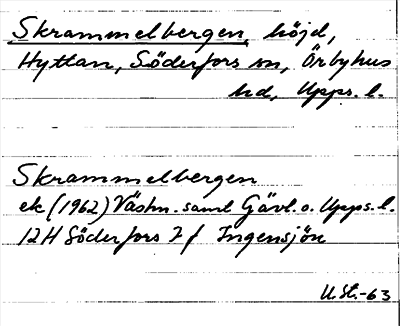 Skrammelbergen, höjd,
Hyttan, Söderfors sn, Örbyhus
hd, Upps. l.
Skrammelbergen
ek (1962) Västm. samt Gävl. o. Upps. l.
12H Söderfors 7 f Ingensjön
U.St.-63